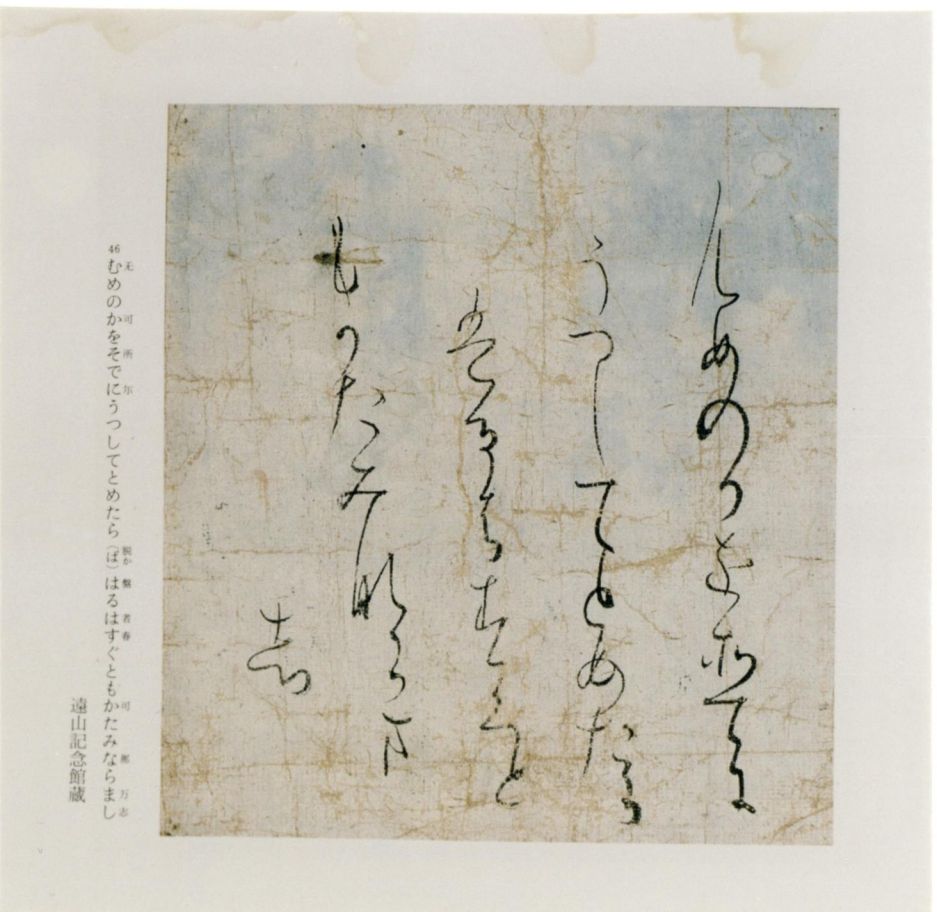 むめのかをそてに
うつしてとめたら
はるはすくと
もかたみならま
し
46
无 可 所 尓 脱か 盤 者 春 可 那 万 志
むめのかをそでにうつしてとめたら（ば）はるはすぐともかたみならまし
遠山記念館蔵